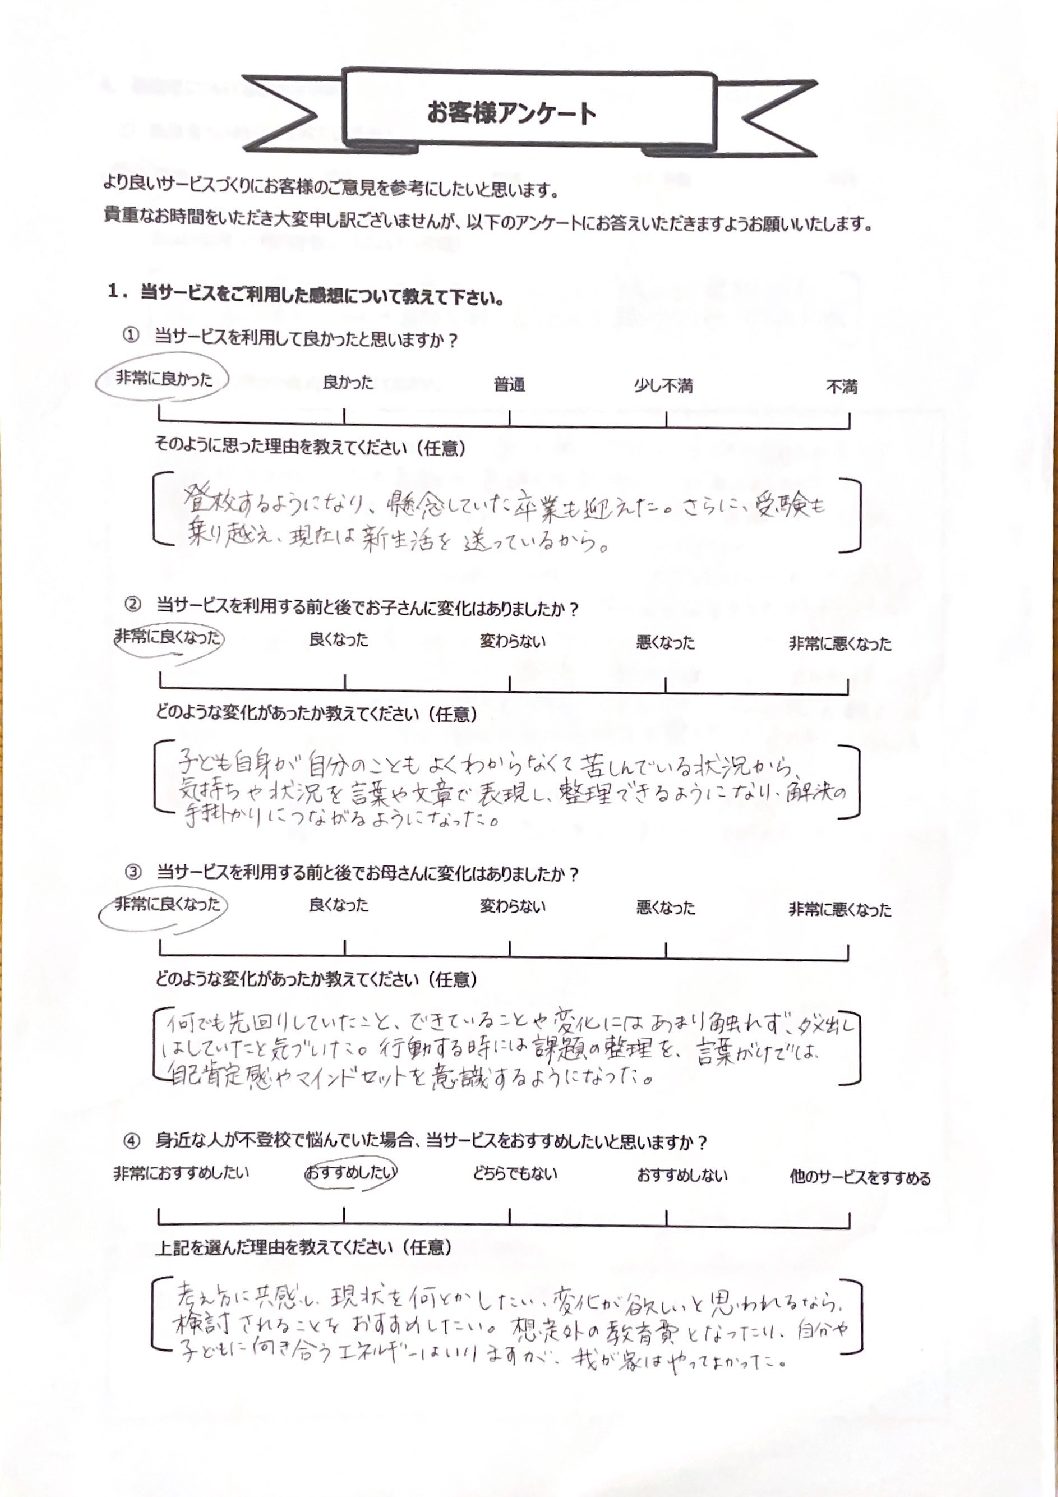 お客様アンケート
より良いサービスづくりにお客様のご意見を参考にしたいと思います。
貴重なお時間をいただき大変申し訳ございませんが、以下のアンケートにお答えいただきますようお願いいたします。
1．当サービスをご利用した感想について教えて下さい。
① 当サービスを利用して良かったと思いますか？
非常に良かった 良かった 普通 少し不満 不満
そのように思った理由を教えてください（任意）
登校するようになり、懸念していた卒業も迎えた。さらに、受験も
乗り越え、現在は新生活を送っているから。
② 当サービスを利用する前と後でお子さんに変化はありましたか？
非常に良くなった 良くなった 変わらない 悪くなった 非常に悪くなった
どのような変化があったか教えてください（任意）
子ども自身が自分のこともよくわからなくて苦しんでいる状況から、
気持ちや状況を言葉や文章で表現し、整理できるようになり、解決の
手掛かりにつながるようになった。
③ 当サービスを利用する前と後でお母さんに変化はありましたか？
非常に良くなった 良くなった 変わらない 悪くなった 非常に悪くなった
どのような変化があったか教えてください（任意）
何でも先回りしていたこと、できていることや変化にはあまり触れず、ダメ出し
はしていたと気づいた。行動する時には課題の整理を、言葉がけでは、
自己肯定感やマインドセットを意識するようになった。
④ 身近な人が不登校で悩んでいた場合、当サービスをおすすめしたいと思いますか？
非常におすすめしたい おすすめしたい どちらでもない おすすめしない 他のサービスをすすめる
上記を選んだ理由を教えてください（任意）
考え方に共感し、現状を何とかしたい、変化が欲しいと思われるなら、
検討されることをおすすめしたい。想定外の教育費となったり、自分や
子どもに向き合うエネルギーはいりますが、我が家はやってよかった。